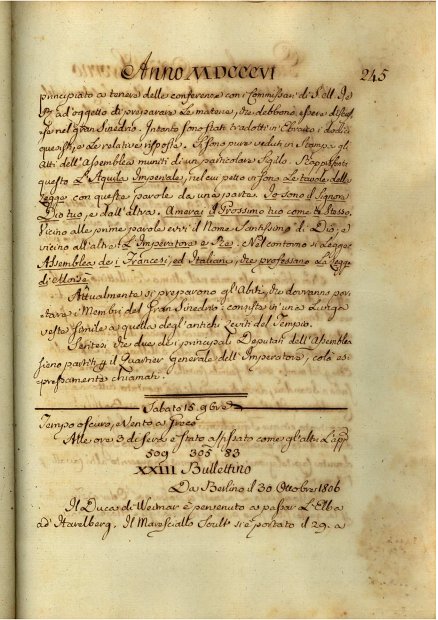 Anno MDCCCVI
245
principiato a tenere delle conferenze con i Commissari di S. M. I. e
R. ad oggetto di preparare le materie, che debbono essere discus,,
se nel gran Sinedrio. Intanto sono stati tradotti in Ebraico i dodici
quesiti, e le relative risposte. Si sono pure veduti in Stampa gli
Atti dell'Assemblea muniti di un particolare Sigillo. Rappresenta
questo L'Aquila Imperiale, nel cui petto vi sono Le tavole della
Legge con queste parole da una parte Io sono il Signore
Dio tuo, e dall'altra. Amerai il Prossimo tuo come te Stesso.
Vicino alle prime parole evvi il Nome Santissimo di Dio, e
vicino all'altre L'Imperatore e Re. Nel contorno si Legge
Assemblea de i Francesi, ed Italiani, che professano La Legge
di Moisè.
Attualmente si preparano gli Abiti, che dovranno por,,
tare i Membri del Gran Sinedrio: consiste in una Lunga
veste simile a quella degl'antichi Leviti del Tempio.
Sentesi che due de i principali Deputati dell'Assemblea
sieno partiti p il Quartier Generale dell'Imperatore, colà es,,
pressamente chiamati.
Sabato 15. 9bre
Tempo oscuro, e Vento a
Alle ore 3 di sera è stato affissato come gl'altri L'app
509 305 83
XXIII Bullettino
Da Berlino il 30 Ottobre 1806
Il Duca di Weimar è pervenuto a passar L'Elba
ad Havelberg. Il Maresciallo Soult si è portato il 29. a